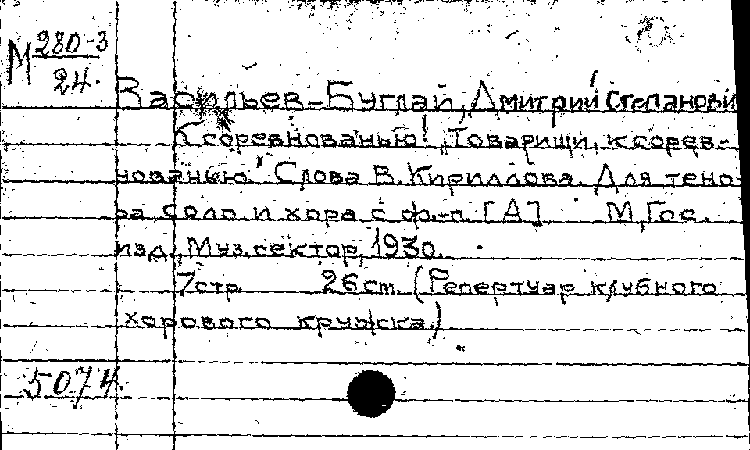 М 280-3
24.
Васильев-Буглай, Дмитрий Степанович
К соревнованью! „Товарищи, к сорев-
нованью." Слова В. Кириллова. Для тено-
ра соло и хора с ф.-п. [А] М, Гос.
изд., Муз. сектор, 1930.
7 стр. 26 cm. (Репертуар клубного
хорового кружка)
5074.